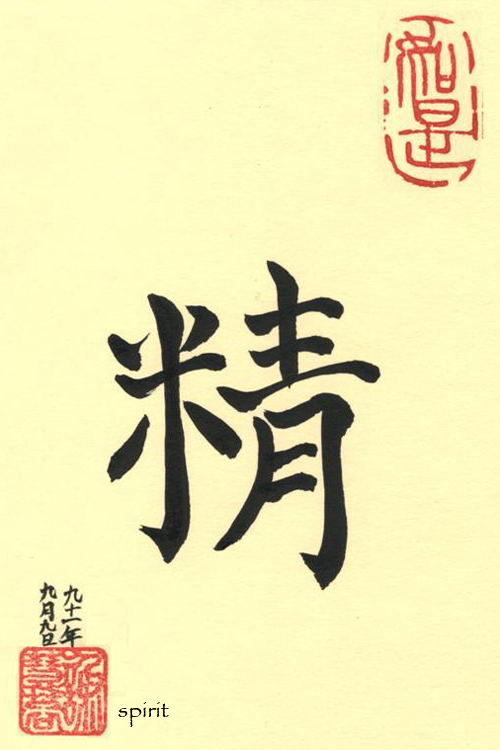 如是
精
九十一年
九月九日
spirit